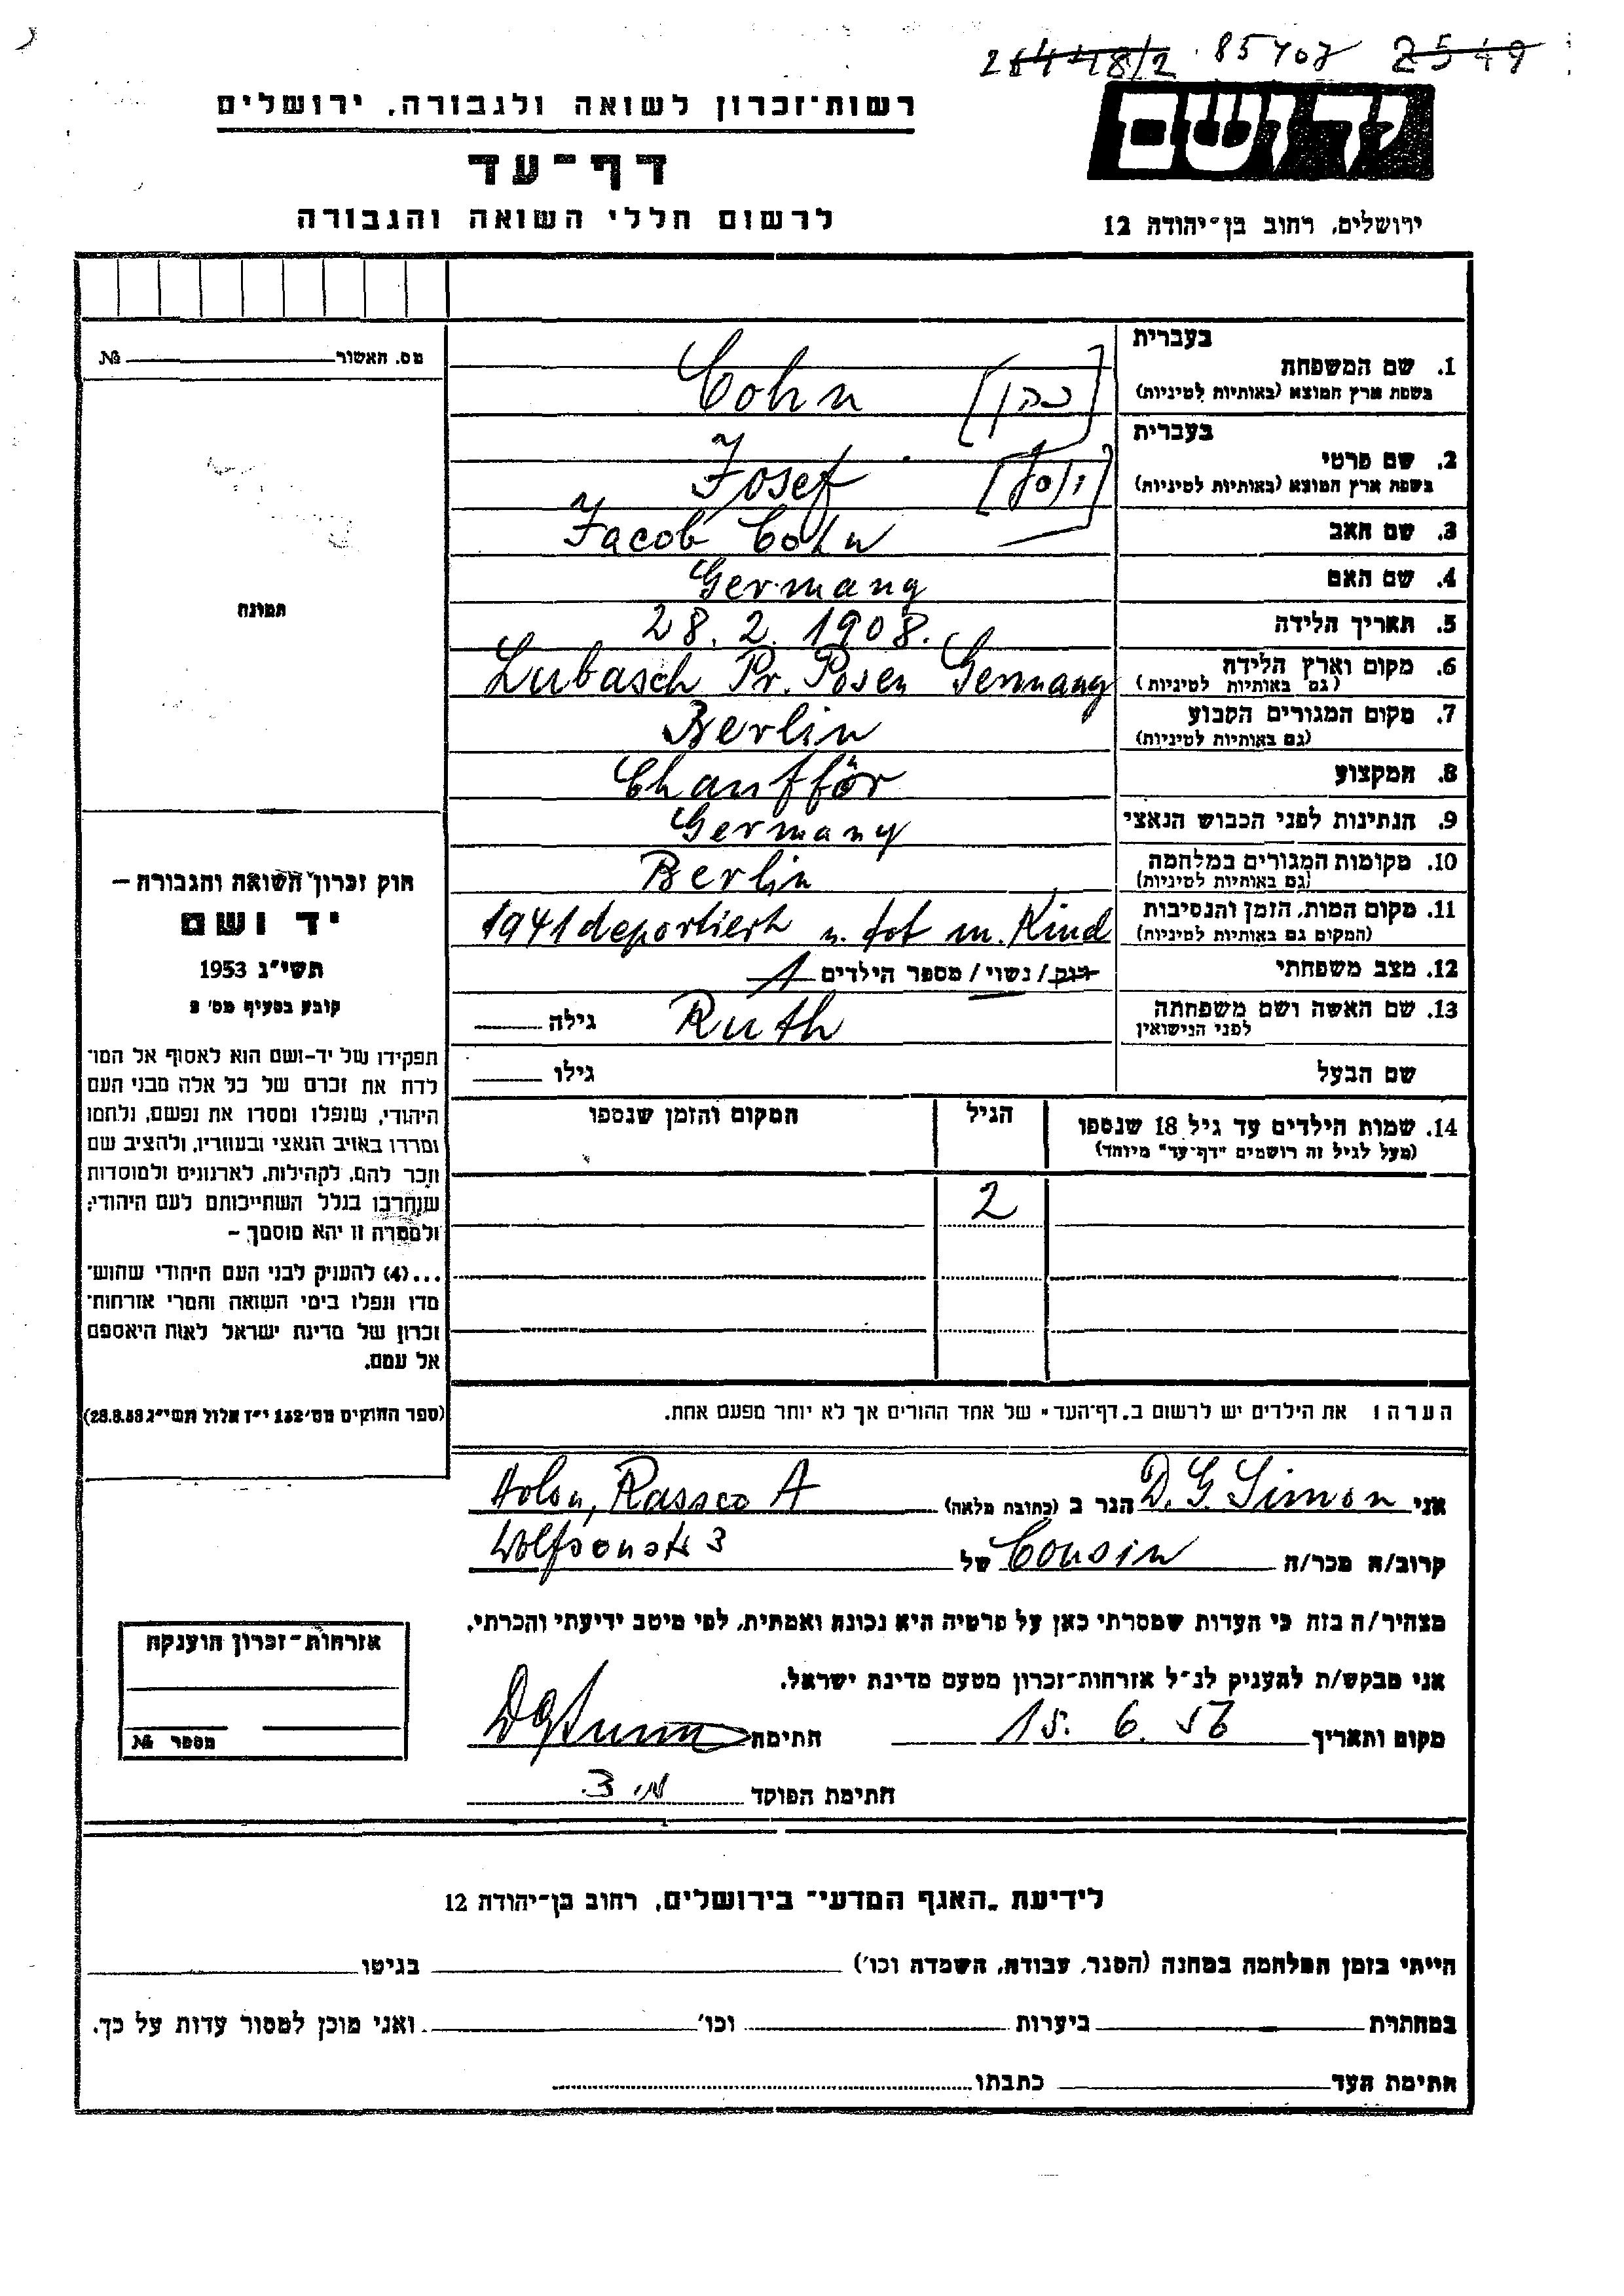 26448/2 85407 2549
רשות־זכרון לשואה ולגבורה, ירושלים
דף־עד
לרשום חללי השואה והגבורה
יד ושם
ירושלים, רחוב בן־יהודה 12
מס. האשור №
תמונה
חוק זכרון השואה והגבורה —
יד ושם
תשי״ג 1953
קובע בסעיף מס׳ 2
תפקידו של יד-ושם הוא לאסוף אל המו־
לדת את זכרם של כל אלה מבני העם
היהודי, שנפלו ומסרו את נפשם, נלחמו
ומרדו באויב הנאצי ובעוזריו, ולהציב שם
וזכר להם, לקהילות, לארגונים ולמוסדות
שנחרבו בגלל השתייכותם לעם היהודי;
ולמטרה זו יהא מוסמך —
...(4) להעניק לבני העם היהודי שהוש־
מדו ונפלו בימי השואה והמרי אזרחות־
זכרון של מדינת ישראל לאות היאספם
אל עמם.
(ספר החוקים מס׳ 132 י״ז אלול תשי״ג 28.8.53)
בעברית
1. שם המשפחה
בשפת ארץ המוצא (באותיות לטיניות)
Cohn [כהן]
בעברית
2. שם פרטי
בשפת ארץ המוצא (באותיות לטיניות)
Josef [יוסף]
3. שם האב Jacob Cohn
4. שם האם Germany
5. תאריך הלידה 28. 2. 1908.
6. מקום וארץ הלידה
(גם באותיות לטיניות)
Lubasch Pr. Posen Germany
7. מקום המגורים הקבוע
(גם באותיות לטיניות)
Berlin
8. המקצוע Chaufför
9. הנתינות לפני הכבוש הנאצי Germany
10. מקומות המגורים במלחמה
(גם באותיות לטיניות)
Berlin
11. מקום המות, הזמן והנסיבות
(המקום גם באותיות לטיניות)
1941 deportiert u. tot m. Kind
12. מצב משפחתי רוק / נשוי / מספר הילדים 1
13. שם האשה ושם משפחתה
לפני הנישואין
Ruth גילה
שם הבעל גילו
14. שמות הילדים עד גיל 18 שנספו
(מעל לגיל זה רושמים "דף־עד" מיוחד)
הגיל
המקום והזמן שנספו
2
הערה: את הילדים יש לרשום ב„דף־העד" של אחד ההורים אך לא יותר מפעם אחת.
אני D. G. Simon הגר ב (כתובת מלאה) Holon, Rassco A
קרוב/ה מכר/ה Cousin של Wolfsonstr 3
מצהיר/ה בזה כי העדות שמסרתי כאן על פרטיה היא נכונה ואמתית, לפי מיטב ידיעתי והכרתי.
אני מבקש/ת להעניק לנ״ל אזרחות־זכרון מטעם מדינת ישראל.
מקום ותאריך 15. 6. 56 חתימה DGSimon
חתימת הפוקד
אזרחות־זכרון הוענקה
מספר №
לידיעת „האגף המדעי" בירושלים, רחוב בן־יהודה 12
הייתי בזמן המלחמה במחנה (הסגר, עבודה, השמדה וכו׳) בגיטו
במחתרת ביערות וכו׳ ואני מוכן למסור עדות על כך.
חתימת העד כתבתו